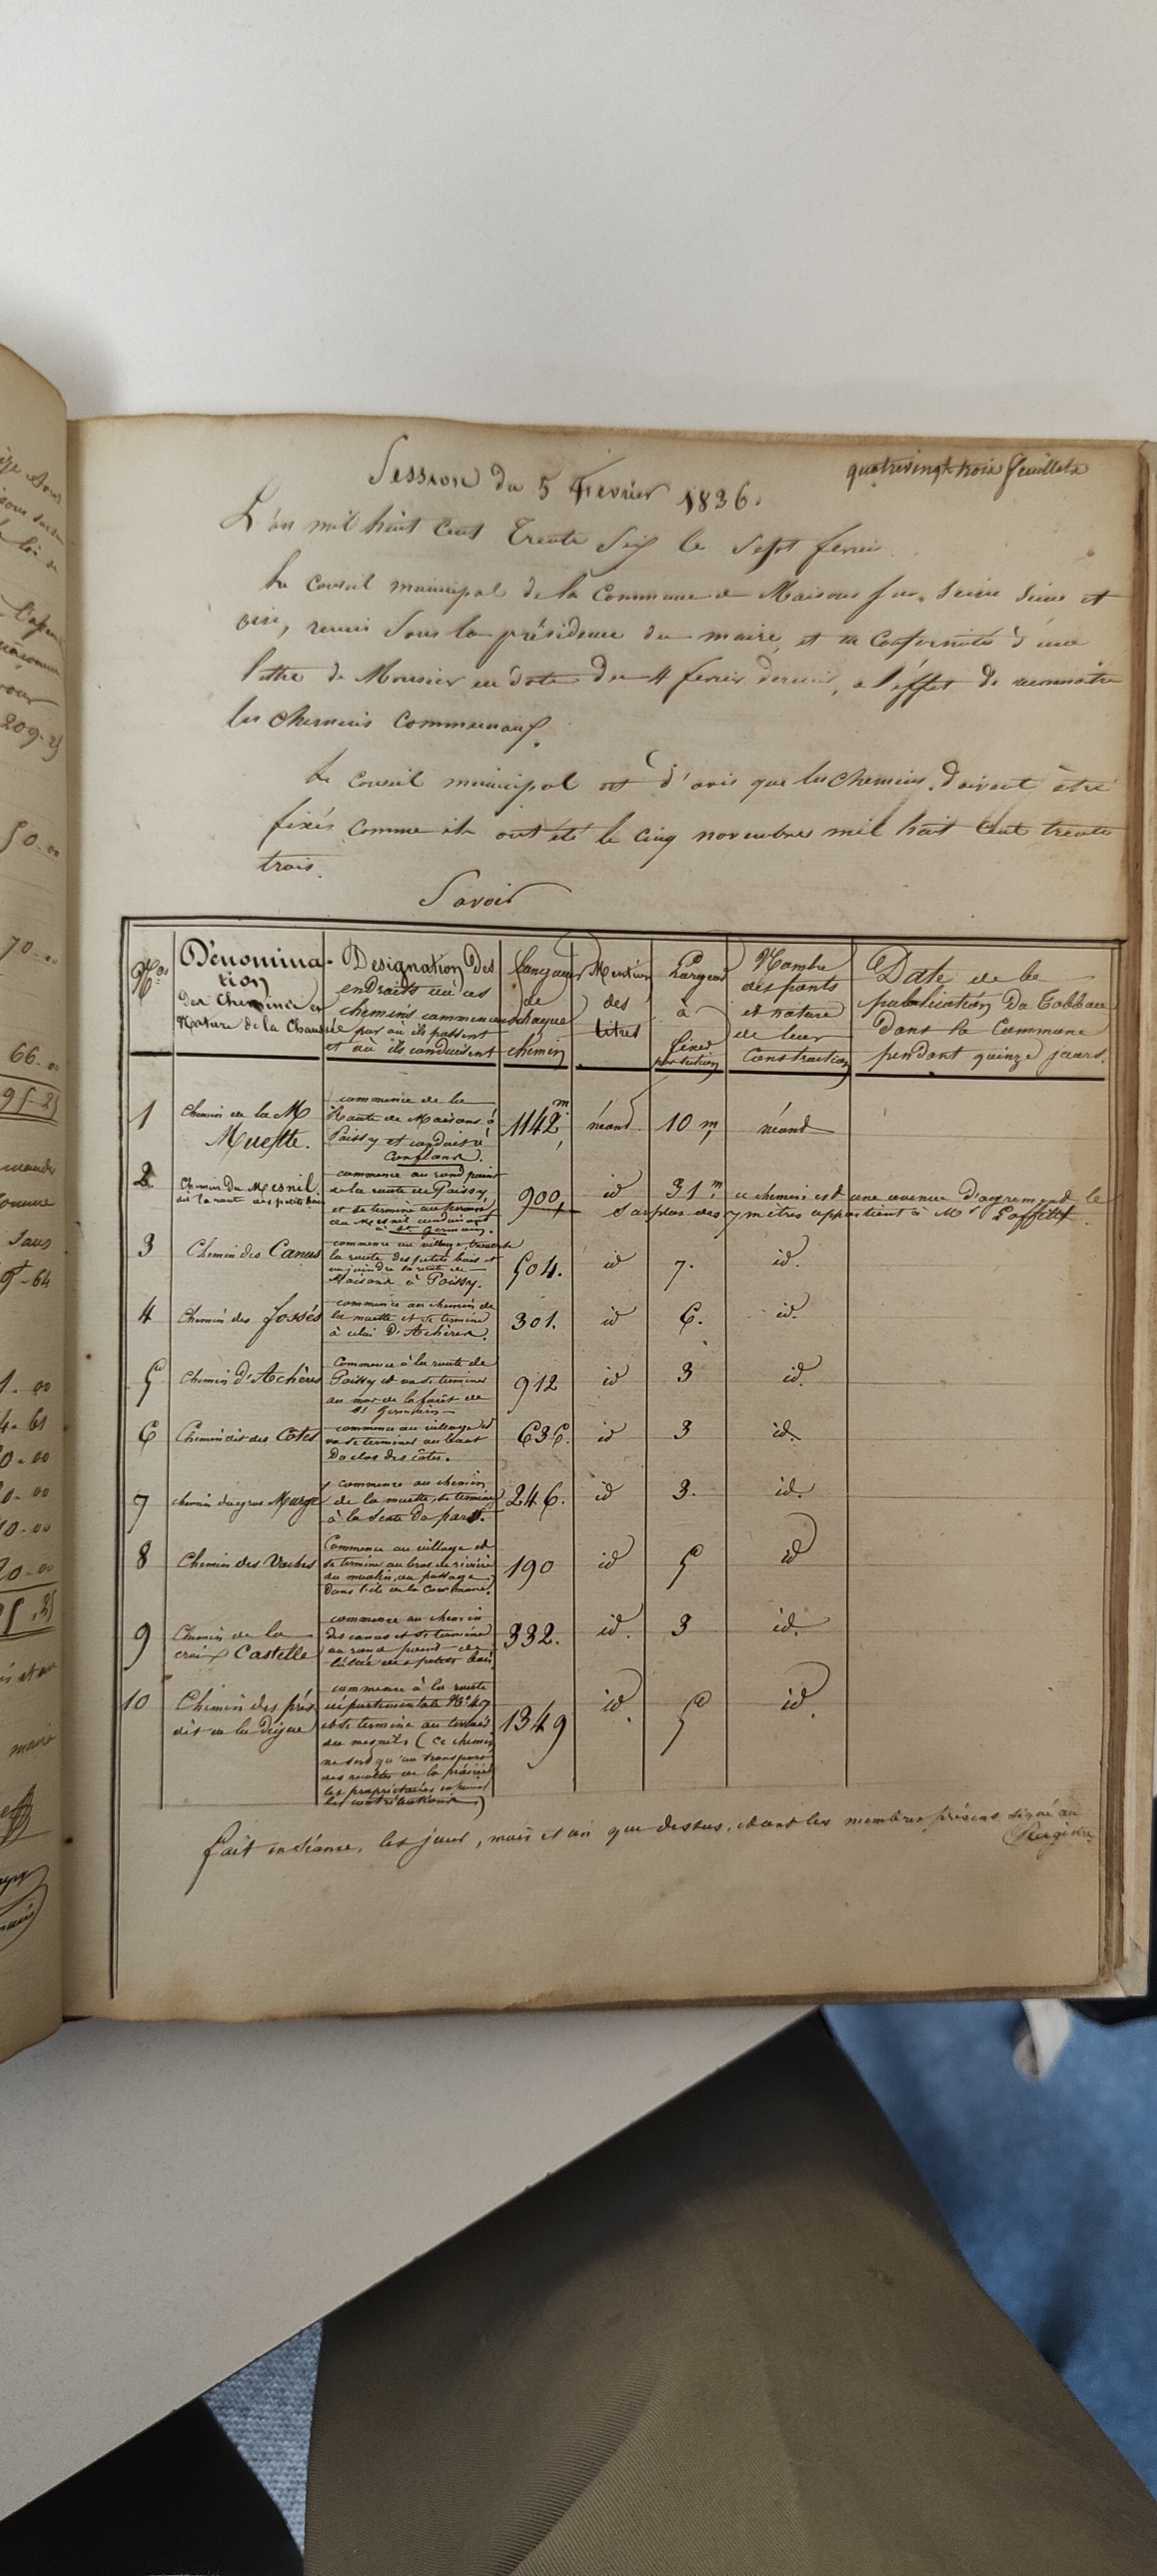 quatrevingt trois feuillets
Session du 5 Fevrier 1836.
L'an mil huit Cent Trente Six le Sept fevrier
Le Conseil municipal de la Commune de Maisons sur Seine Seine et
oise, reuni Sous la présidence du maire, et en Conformité d'une
lettre de Monsieur en date du 4 fevrier dernier, a l'effet de reconnaitre
les chemins Communaux.
Le Conseil municipal est d'avis que les chemins doivent être
fixés comme ils ont été le cinq novembre mil huit Cent trente
trois.
Savoir
Nos
Dénomina-
tion
des Chemins et
Nature de la Chaussée
Designation Des
endroits où ces
chemins commencent
par où ils passent
et où ils conduisent
Longueur
de
chaque
chemin
Mention
des
titres
Largeur
à
fixer
Nombre
des ponts
et nature
de leur
Construction
Date de la
publication du Tableau
dans la Commune
pendant quinze jours.
1
Chemin de la M
Muette.
commence de la
Route de Maisons à
Poissy et conduit à
Conflans.
1142 m
néant
10 m
néant
2
Chemin du Mesnil
dit la route des petits bois
commence au rond point
de la route de Poissy,
et se termine au terroir
du Mesnil conduisant
à St Germain.
900
id
31 m
ce chemin est une avenue d'agrement le
Surplus des 7 mètres appartient à Mr Laffitte.
3
Chemin des Canus
commence au village, traverse
la route des petits bois et
va joindre la route de
Maisons à Poissy.
504.
id
7.
id.
4
Chemin des fossés
commence au chemin de
la muette et se termine
à celui D'Achères.
301.
id
6.
id.
5
Chemin d'Achères
Commence à la route de
Poissy et va se terminer
au mur de la forêt de
St Germain
912
id
3
id.
6
Chemin dit des Côtes
commence au village et
va se terminer au bout
Du clos des côtes.
636.
id
3
id.
7
chemin du gros Murger
commence au chemin
de la muette, se termine
à la Sente du parc.
246.
id
3.
id.
8
Chemin des Vaches
Commence au village et
se termine au bras de rivière
du moulin, au passage
Dans l'ile de la Commune.
190
id
5
id
9
Chemin de la
croix Castelle
commence au chemin
des canus et se termine
au rond point de
l'allée des petits bois
332.
id.
3
id.
10
Chemin des prés
dit de la Digue
commence à la route
départementale No
et se termine au terroir
du mesnil (Ce chemin
ne sert qu'au transport
des récoltes de la prairie
les propriétaires en
les contributions)
1349
id.
5
id.
fait en Séance, les jour, mois et an que dessus, et ont les membres présens signé au
Registre.